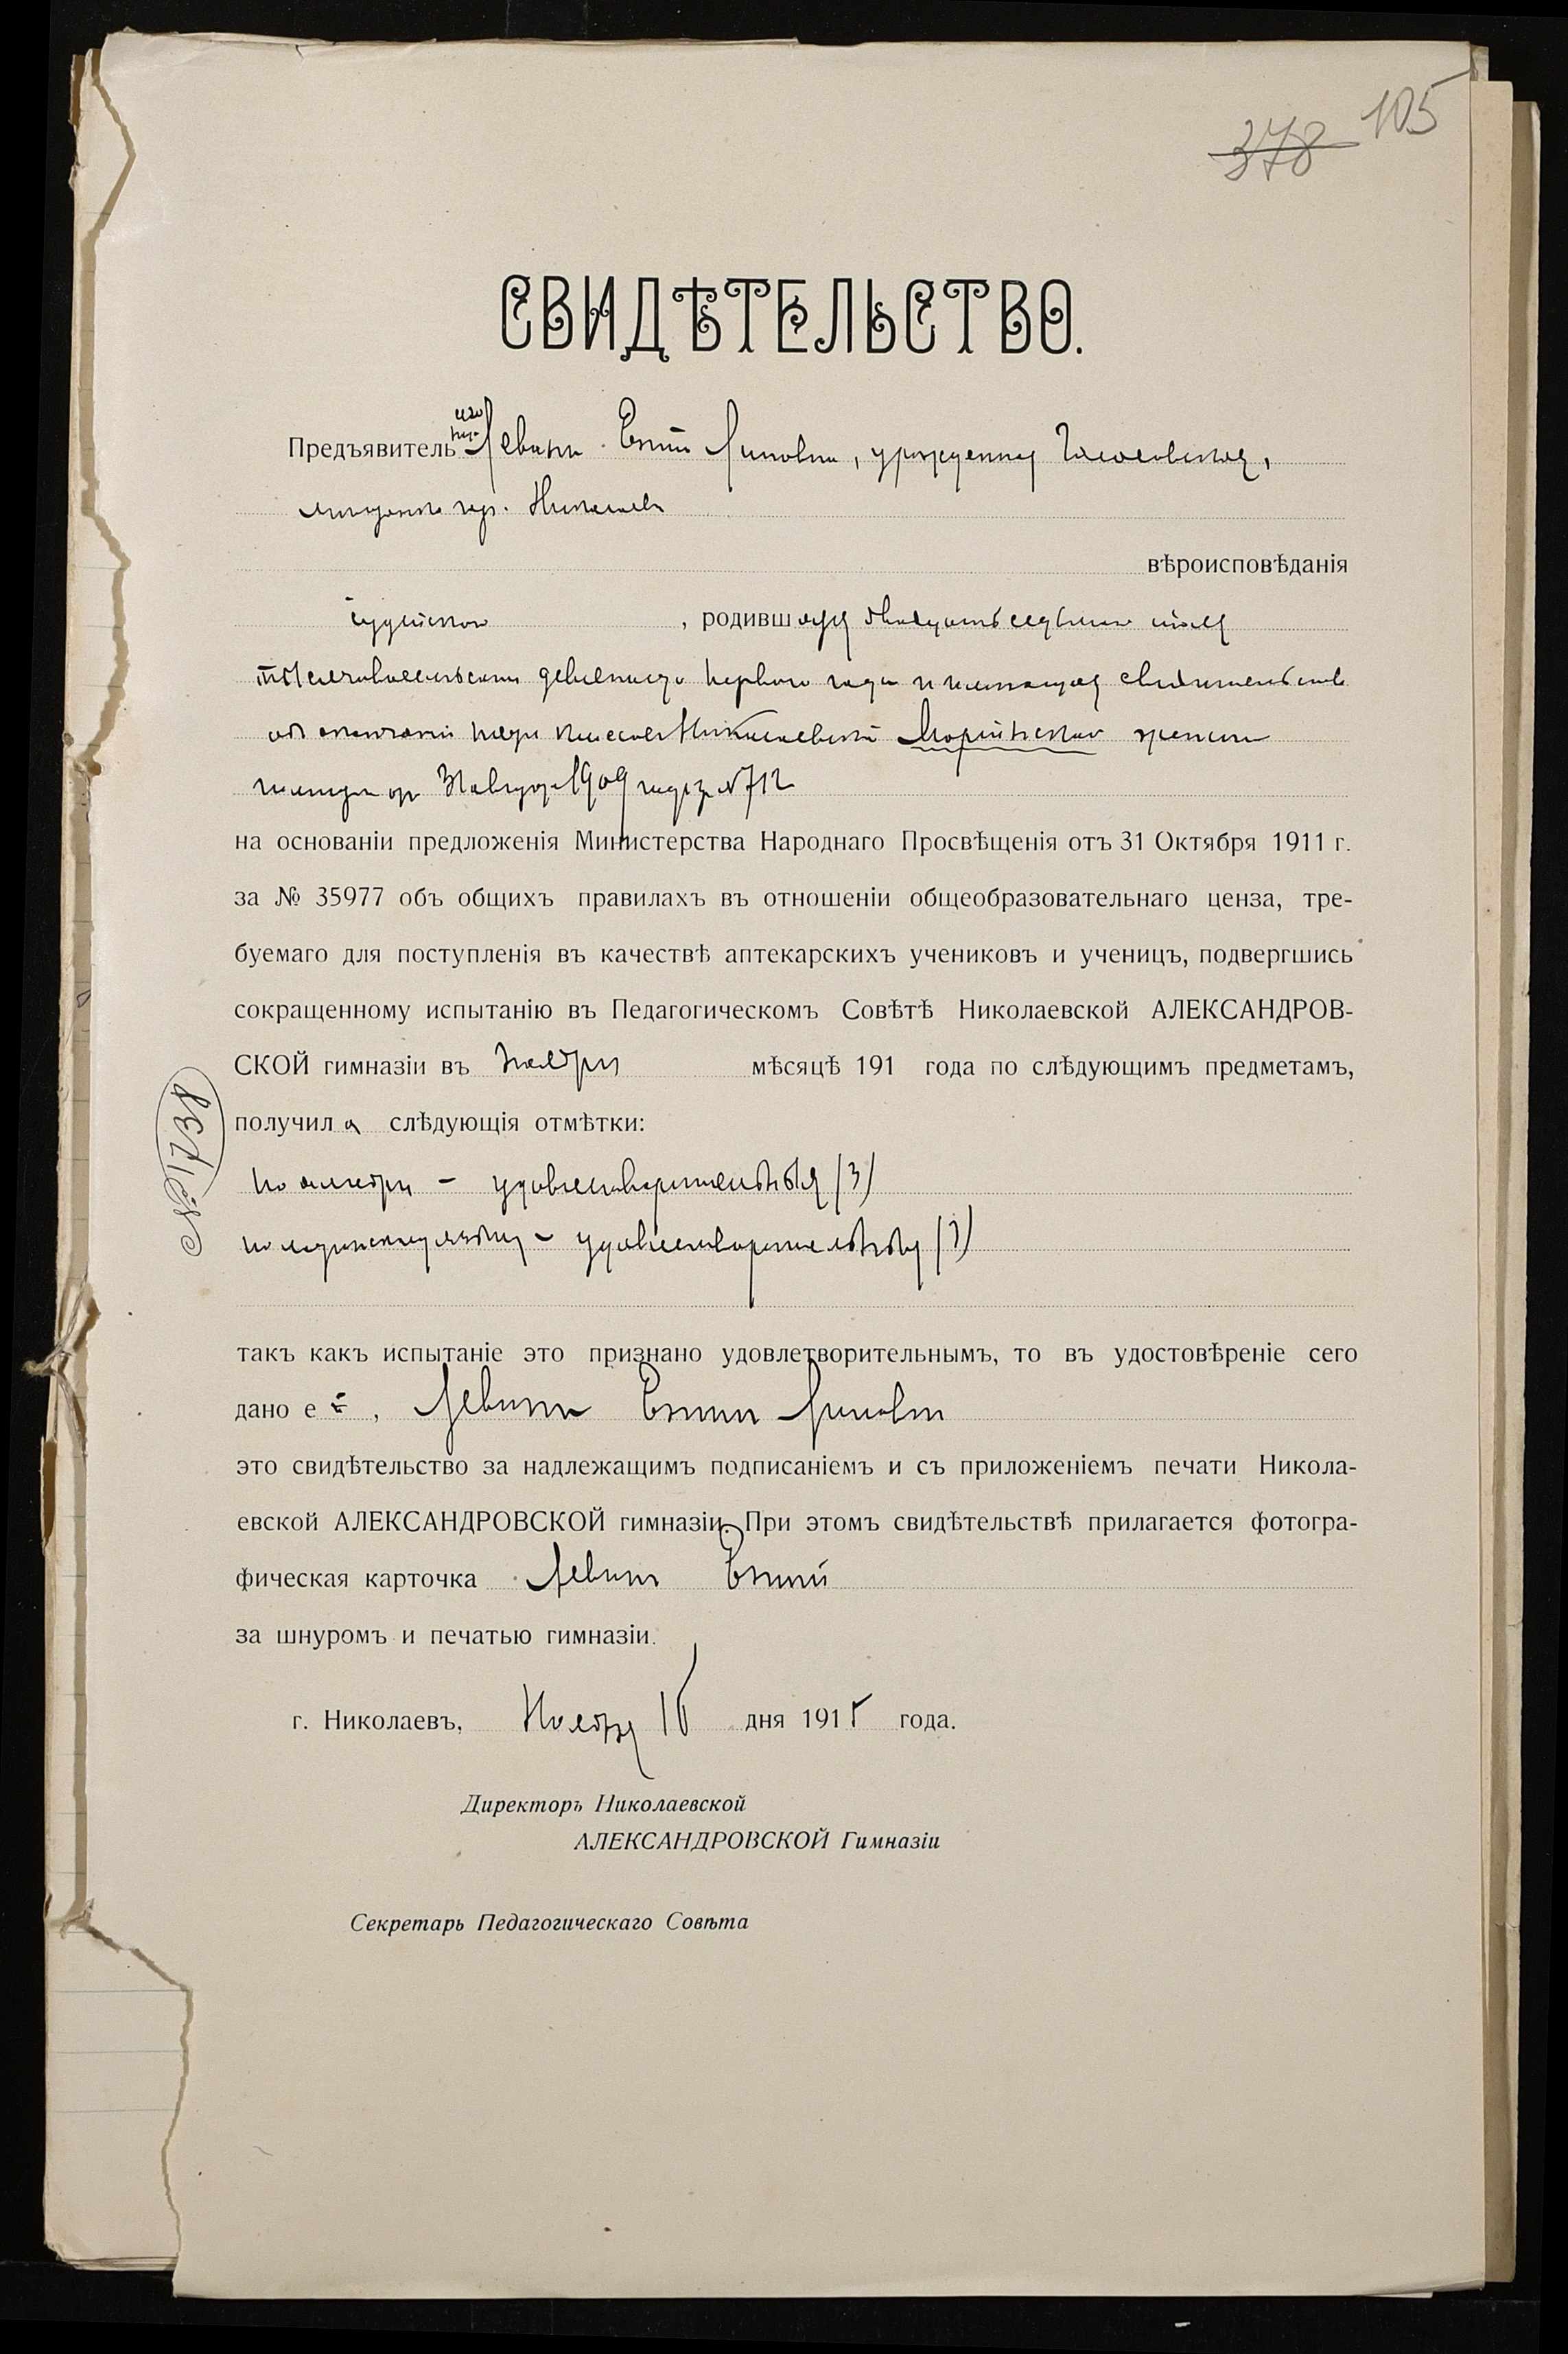 378 105
СВИДѢТЕЛЬСТВО.
Предъявительница сего Левитъ урожденная
гор. Николаева
вѣроисповѣданія
іудейского, родившаяся двадцать седьмого
тысяча девятьсотъ перваго года и имѣющая свидѣтельство
объ окончаніи классовъ Николаевской Маріинской женской
гимназіи отъ 1909 года за № 712
на основаніи предложенія Министерства Народнаго Просвѣщенія отъ 31 Октября 1911 г.
за № 35977 объ общихъ правилахъ въ отношеніи общеобразовательнаго ценза, тре-
буемаго для поступленія въ качествѣ аптекарскихъ учениковъ и ученицъ, подвергшись
сокращенному испытанію въ Педагогическомъ Совѣтѣ Николаевской АЛЕКСАНДРОВ-
СКОЙ гимназіи въ ноябрѣ мѣсяцѣ 191 года по слѣдующимъ предметамъ,
получила слѣдующія отмѣтки:
по алгебрѣ – удовлетворительныя (3)
по латинскому языку – удовлетворительныя (3)
такъ какъ испытаніе это признано удовлетворительнымъ, то въ удостовѣреніе сего
дано ей, Левитъ
это свидѣтельство за надлежащимъ подписаніемъ и съ приложеніемъ печати Никола-
евской АЛЕКСАНДРОВСКОЙ гимназіи. При этомъ свидѣтельствѣ прилагается фотогра-
фическая карточка Левитъ
за шнуромъ и печатью гимназіи.
г. Николаевъ, Ноября 16 дня 1915 года.
Директоръ Николаевской
АЛЕКСАНДРОВСКОЙ Гимназіи
Секретарь Педагогическаго Совѣта